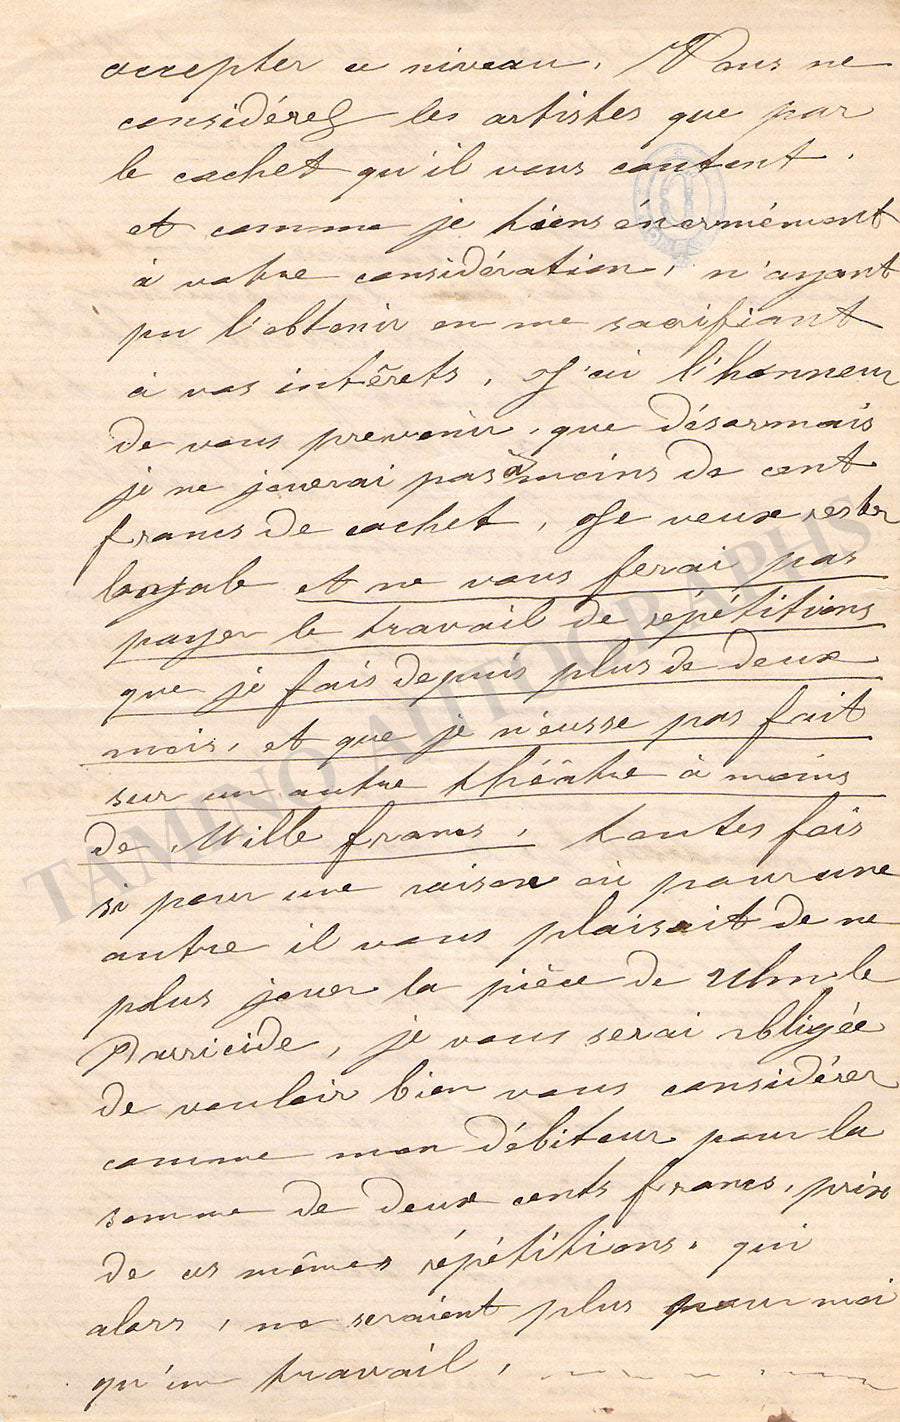 accepter ce niveau. Vous ne
considérez les artistes que par
le cachet qu'il vous coutent.
et comme je tiens énormément
à votre considération, n'ayant
pu l'obtenir en me sacrifiant
à vos intérêts, J'ai l'honneur
de vous prevenir, que désormais
je ne jouerai pas à moins de cent
francs de cachet, Je veux rester
loyale et ne vous ferai pas
payer le travail de répétitions
que je fais depuis plus de deux
mois, et que je n'eusse pas fait
sur un autre théâtre à moins
de Mille francs, toutes fois
si pour une raison ou pour une
autre il vous plaisait de ne
plus jouer la pièce de Ulm le
Parricide, je vous serai obligée
de vouloir bien vous considérer
comme mon débiteur pour la
somme de deux cents francs, prix
de ces mêmes répétitions. qui
alors, ne seraient plus pour moi
qu'un travail,
TAMINO AUTOGRAPHS